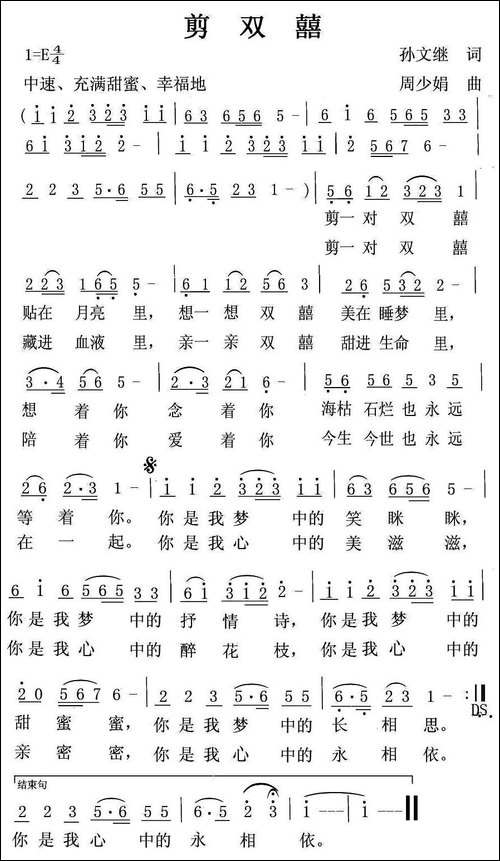 剪 双 囍
1=E 4/4 孙文继 词
中速、充满甜蜜、幸福地 周少娟 曲
( i i 2 3 2 3 i i | 6 3 6 5 6 5 - | 6 i 6 5 6 5 3 3 |
6 i 3 i 2 2 - | i i 2 3 2 3 i i | 2 5 6 7 6 - |
2 2 3 5 · 6 5 5 | 6 · 5 2 3 1 - ) | 5 6 1 2 3 2 3 1 |
剪一 对 双 囍
剪一 对 双 囍
2 2 3 1 6 5 5 - | 6 1 1 2 5 6 3 | 2 6 5 3 2 2 - |
贴在 月亮 里, 想一 想 双 囍 美在 睡梦 里,
藏进 血液 里, 亲一 亲 双 囍 甜进 生命 里,
3 · 4 5 6 5 - | 2 · 3 2 1 6 - | 5 6 5 6 5 3 5 |
想 着 你 念 着 你 海枯 石烂 也 永 远
陪 着 你 爱 着 你 今生 今世 也 永 远
2 6 2 · 3 1 - | i i 2 3 2 3 i i | 6 3 6 5 6 5 - |
等 着 你。 你 是 我 梦 中的 笑 眯 眯,
在 一 起。 你 是 我 心 中的 美 滋 滋,
6 i 6 5 6 5 3 3 | 6 i 3 i 2 2 - | i i 2 3 2 3 i i |
你 是 我 梦 中的 抒 情 诗, 你 是 我 梦 中的
你 是 我 心 中的 醉 花 枝, 你 是 我 心 中的
2 0 5 6 7 6 - | 2 2 3 5 · 6 5 5 | 6 · 5 2 3 1 - :‖
D.S.
甜 蜜 蜜, 你 是 我 梦 中的 长 相 思。
亲 密 密, 你 是 我 心 中的 永 相 依。
结束句
2 2 3 5 · 6 5 5 | 6 · 5 2 3 · | i - - - | i - - - ‖
你 是 我 心 中的 永 相 依。